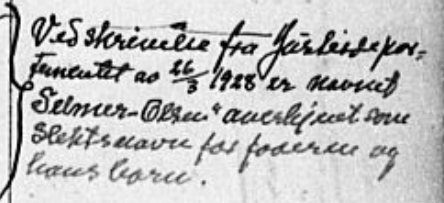 Ved skrivelse fra Justisdepar-
tementet av 26/3 1928 er navnet
Selmer-Olsen" anerkjent som
slektsnavn for faderen og
hans barn.